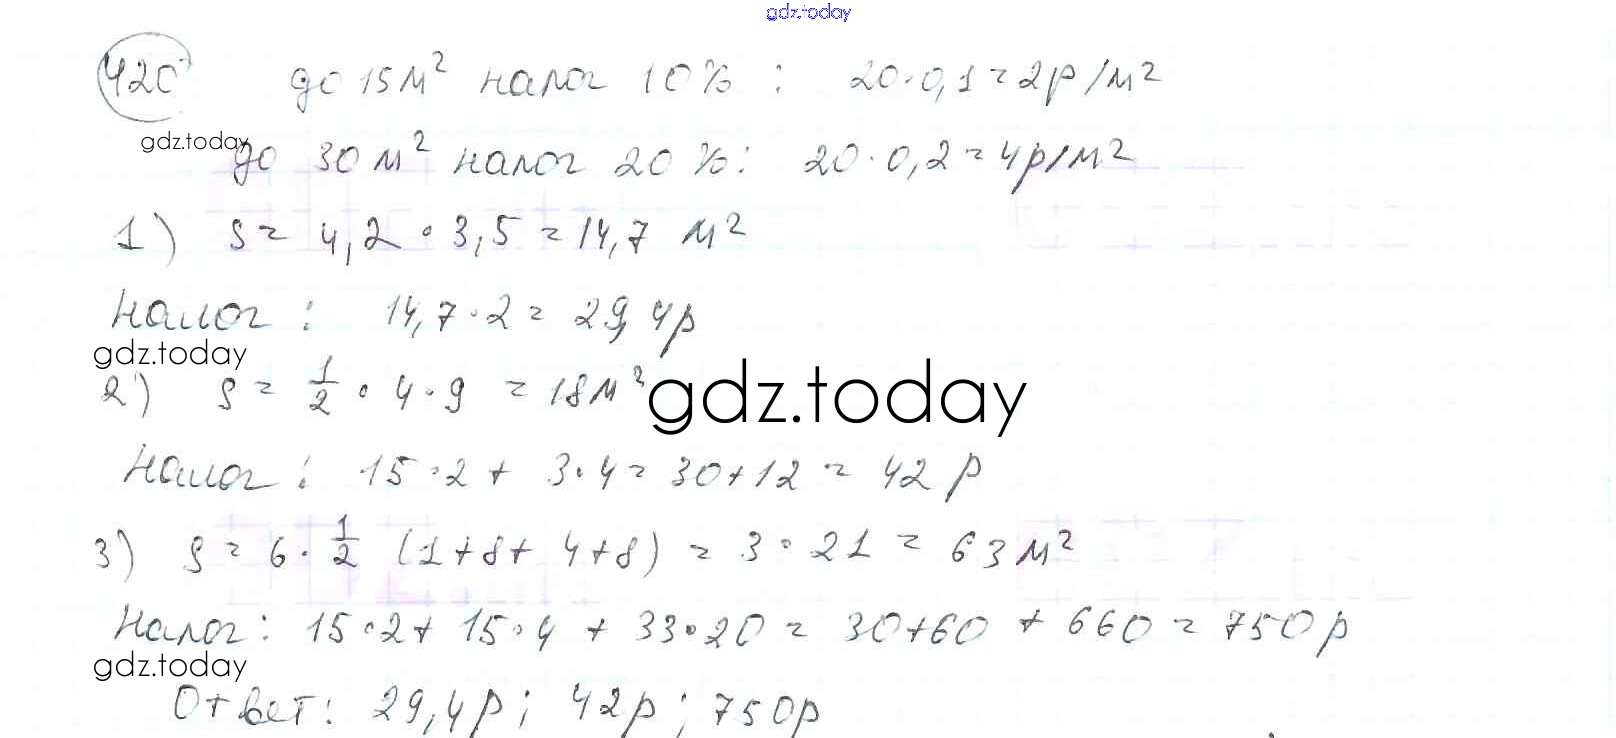 gdz.today
420 до 15 м² налог 10% : 20·0,1=2р/м²
gdz.today
до 30 м² налог 20%: 20·0,2=4р/м²
1) S= 4,2·3,5=14,7 м²
Налог: 14,7·2= 29,4р
gdz.today
2) S= 1/2·4·9 = 18м²
gdz.today
Налог: 15·2+ 3·4= 30+12 = 42 р
3) S= 6·1/2 (1+8+ 4+8) = 3·21 = 63 м²
Налог: 15·2+ 15·4 + 33·20= 30+60 + 660 = 750р
gdz.today
Ответ: 29,4р; 42р; 750р